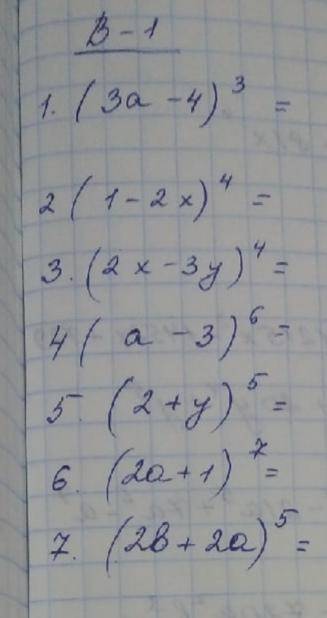 В - 1
1. (3a - 4)³ =
2 (1 - 2x)⁴ =
3. (2x - 3y)⁴ =
4 (a - 3)⁶ =
5. (2 + y)⁵ =
6. (2a + 1)⁷ =
7. (2b + 2a)⁵ =